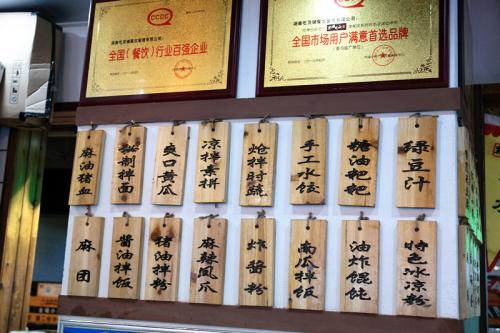 CCDC
全国(餐饮)行业百强企业
全国市场用户满意首选品牌
麻油猪血
秘制拌面
爽口黄瓜
凉拌素拼
炝拌时蔬
手工水饺
糖油粑粑
绿豆汁
麻团
酱油拌饭
猪油拌粉
麻辣凤爪
炸酱粉
南瓜拌饭
油炸馄饨
特色冰凉粉